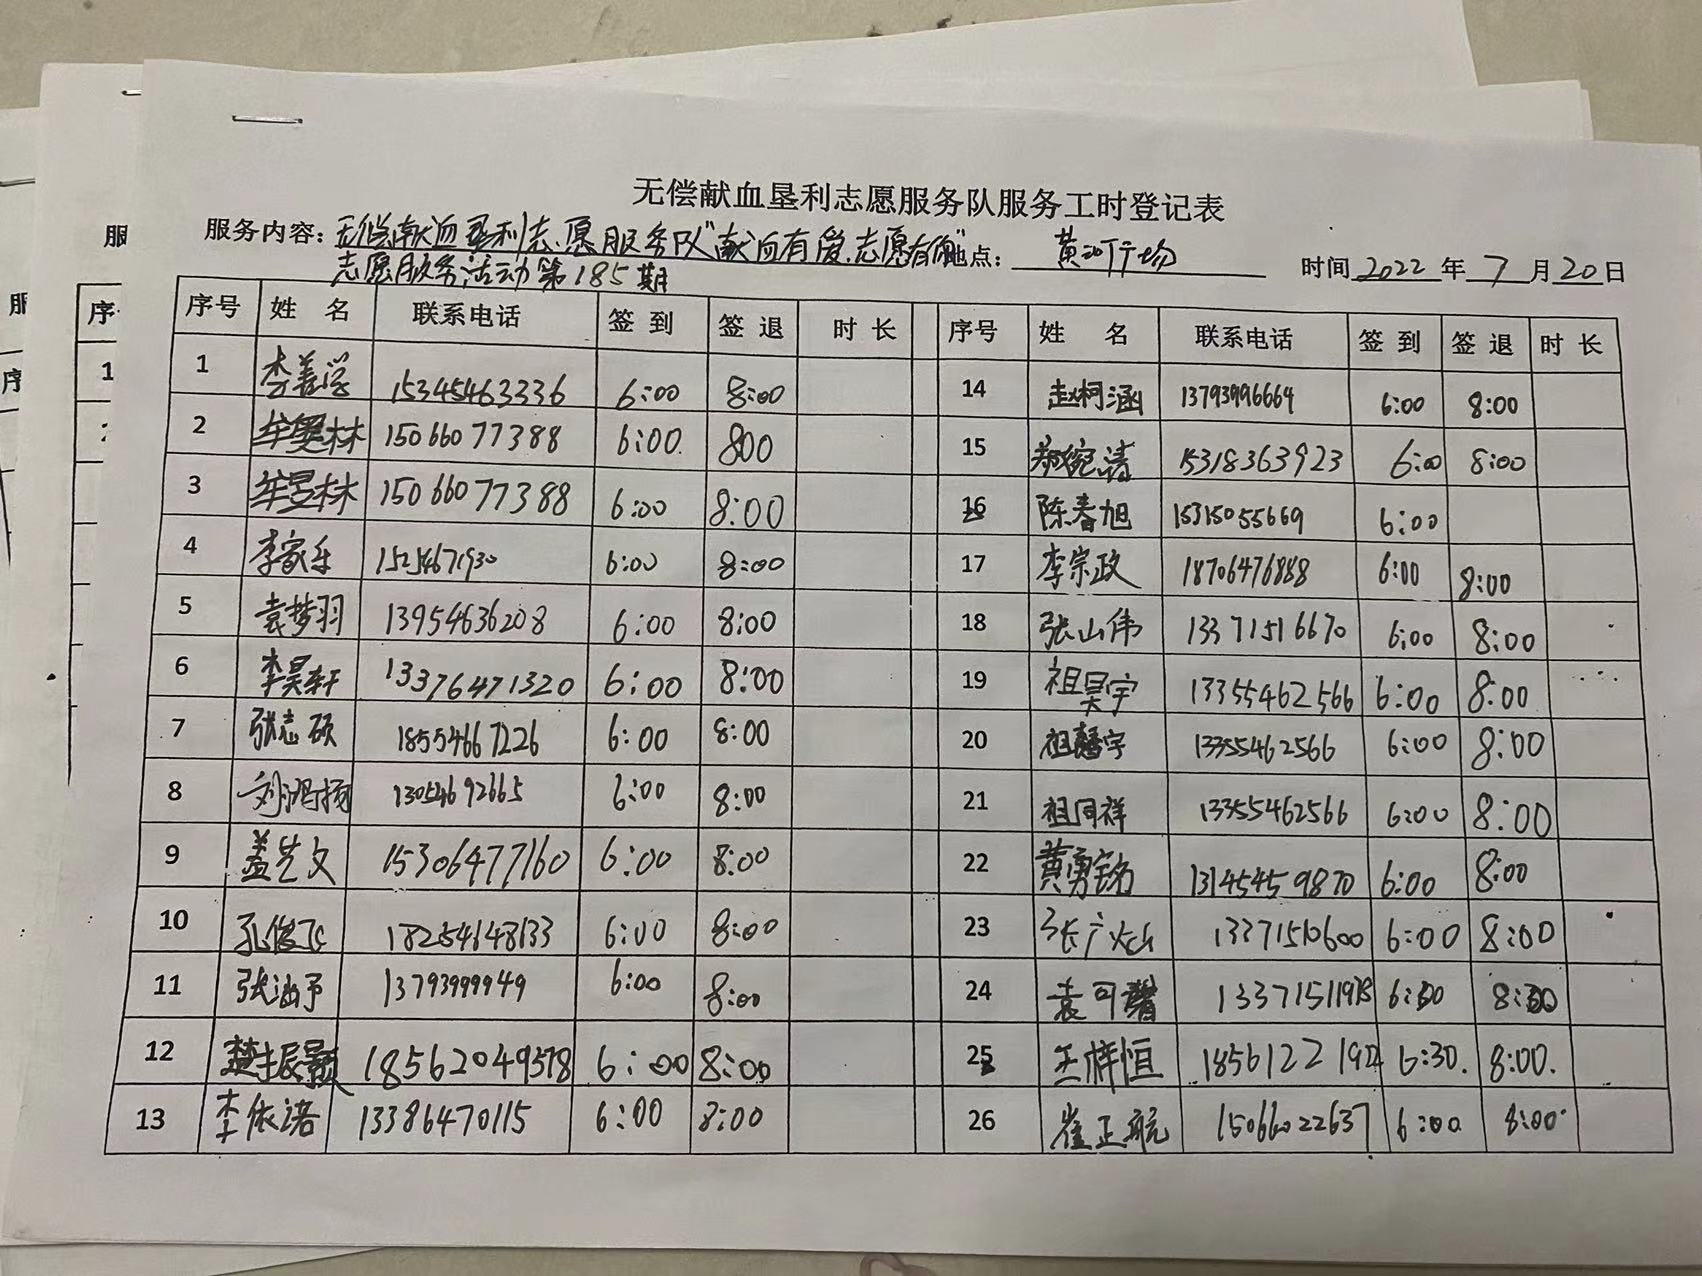 无偿献血垦利志愿服务队服务工时登记表
服务内容：无偿献血垦利志愿服务队"献血有爱.志愿有你"地点： 黄河广场 时间 2022 年 7 月 20 日
志愿服务活动第185期
序号 姓 名 联系电话 签 到 签 退 时 长 序号 姓 名 联系电话 签 到 签 退 时 长
1 李善学 15345463336 6:00 8:00 14 赵柯涵 13793996664 6:00 8:00
2 林 15066077388 6:00. 800 15 郑宛清 15318363923 6:00 8:00
3 牟昱林 15066077388 6:00 8:00 16 陈春旭 15315055669 6:00
4 李家乐 15254671930 6:00 8:00 17 李宗政 18706476888 6:00 8:00
5 袁梦羽 13954636208 6:00 8:00 18 张山伟 13371516670 6:00 8:00
6 李昊轩 13376471320 6:00 8:00 19 祖昊宇 13355462566 6:00 8:00
7 张志硕 18554667226 6:00 8:00 20 祖宇 13355462566 6:00 8:00
8 刘鸿扬 13054692665 6:00 8:00 21 祖同祥 13355462566 6:00 8:00
9 盖艺文 15306477160 6:00 8:00 22 黄勇铭 13145459870 6:00 8:00
10 孔俊飞 18254648133 6:00 8:00 23 张广 13371510600 6:00 8:00
11 张涵予 13793999949 6:00 8:00 24 袁可馨 6:30 8:30
12 楚振 18562049578 6:00 8:00 25 王梓恒 6:30. 8:00.
13 李依诺 13386470115 6:00 8:00 26 崔正航 15066022637 6:00 8:00